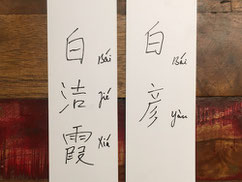 白 Bái
洁 Jié
霞 Xiá
白 Bái
彦 Yàn